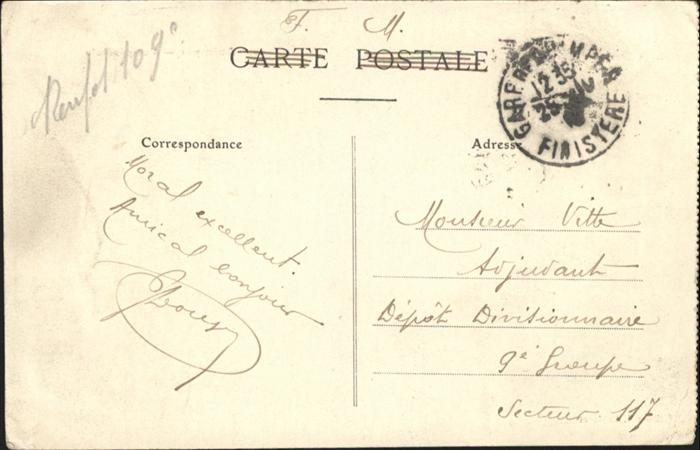 F. M.
CARTE POSTALE
109e
GARE QUIMPER
12 35
FINISTERE
Correspondance
Moral excellent.
Amical bonjour
Adresse
Monsieur Vitte
Adjudant
Dépôt Divisionnaire
9e Groupe
Secteur 117